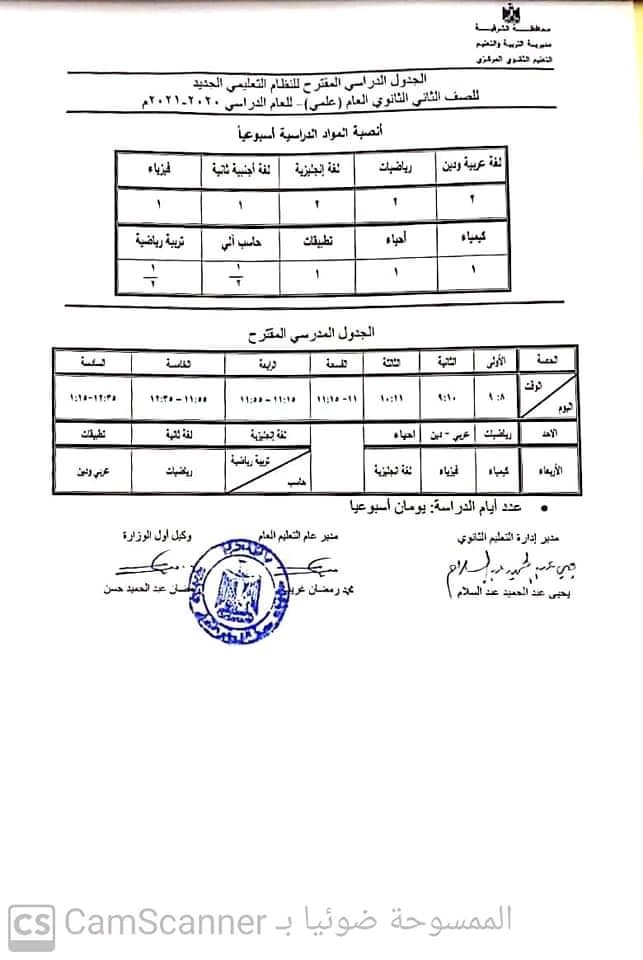 محافظة الشرقية
مديرية التربية والتعليم
التعليم الثانوي المركزي
الجدول الدراسي المقترح للنظام التعليمي الجديد
للصف الثاني الثانوي العام (علمي) - للعام الدراسي ٢٠٢٠-٢٠٢١م
أنصبة المواد الدراسية أسبوعياً
لغة عربية ودين رياضيات لغة إنجليزية لغة أجنبية ثانية فيزياء
٢ ٢ ٢ ١ ١
كيمياء أحياء تطبيقات حاسب آلي تربية رياضية
١ ١ ١ ١/٢ ١/٢
الجدول المدرسي المقترح
الحصة الأولى الثانية الثالثة الفسحة الرابعة الخامسة السادسة
الوقت اليوم ٨:٩ ٩:١٠ ١٠:١١ ١١-١١:١٥ ١١:١٥-١١:٥٥ ١١:٥٥-١٢:٣٥ ١٢:٣٥-١:١٥
الاحد رياضيات عربي - دين احياء لغة إنجليزية لغة ثانية تطبيقات
الأربعاء كيمياء فيزياء لغة انجليزية تربية رياضية حاسب رياضيات عربي ودين
• عدد أيام الدراسة: يومان أسبوعيا
مدير إدارة التعليم الثانوي مدير عام التعليم العام وكيل أول الوزارة
يحيى عبد الحميد عبد السلام محمد رمضان غريب رمضان عبد الحميد حسن
CS CamScanner الممسوحة ضوئيا بـ